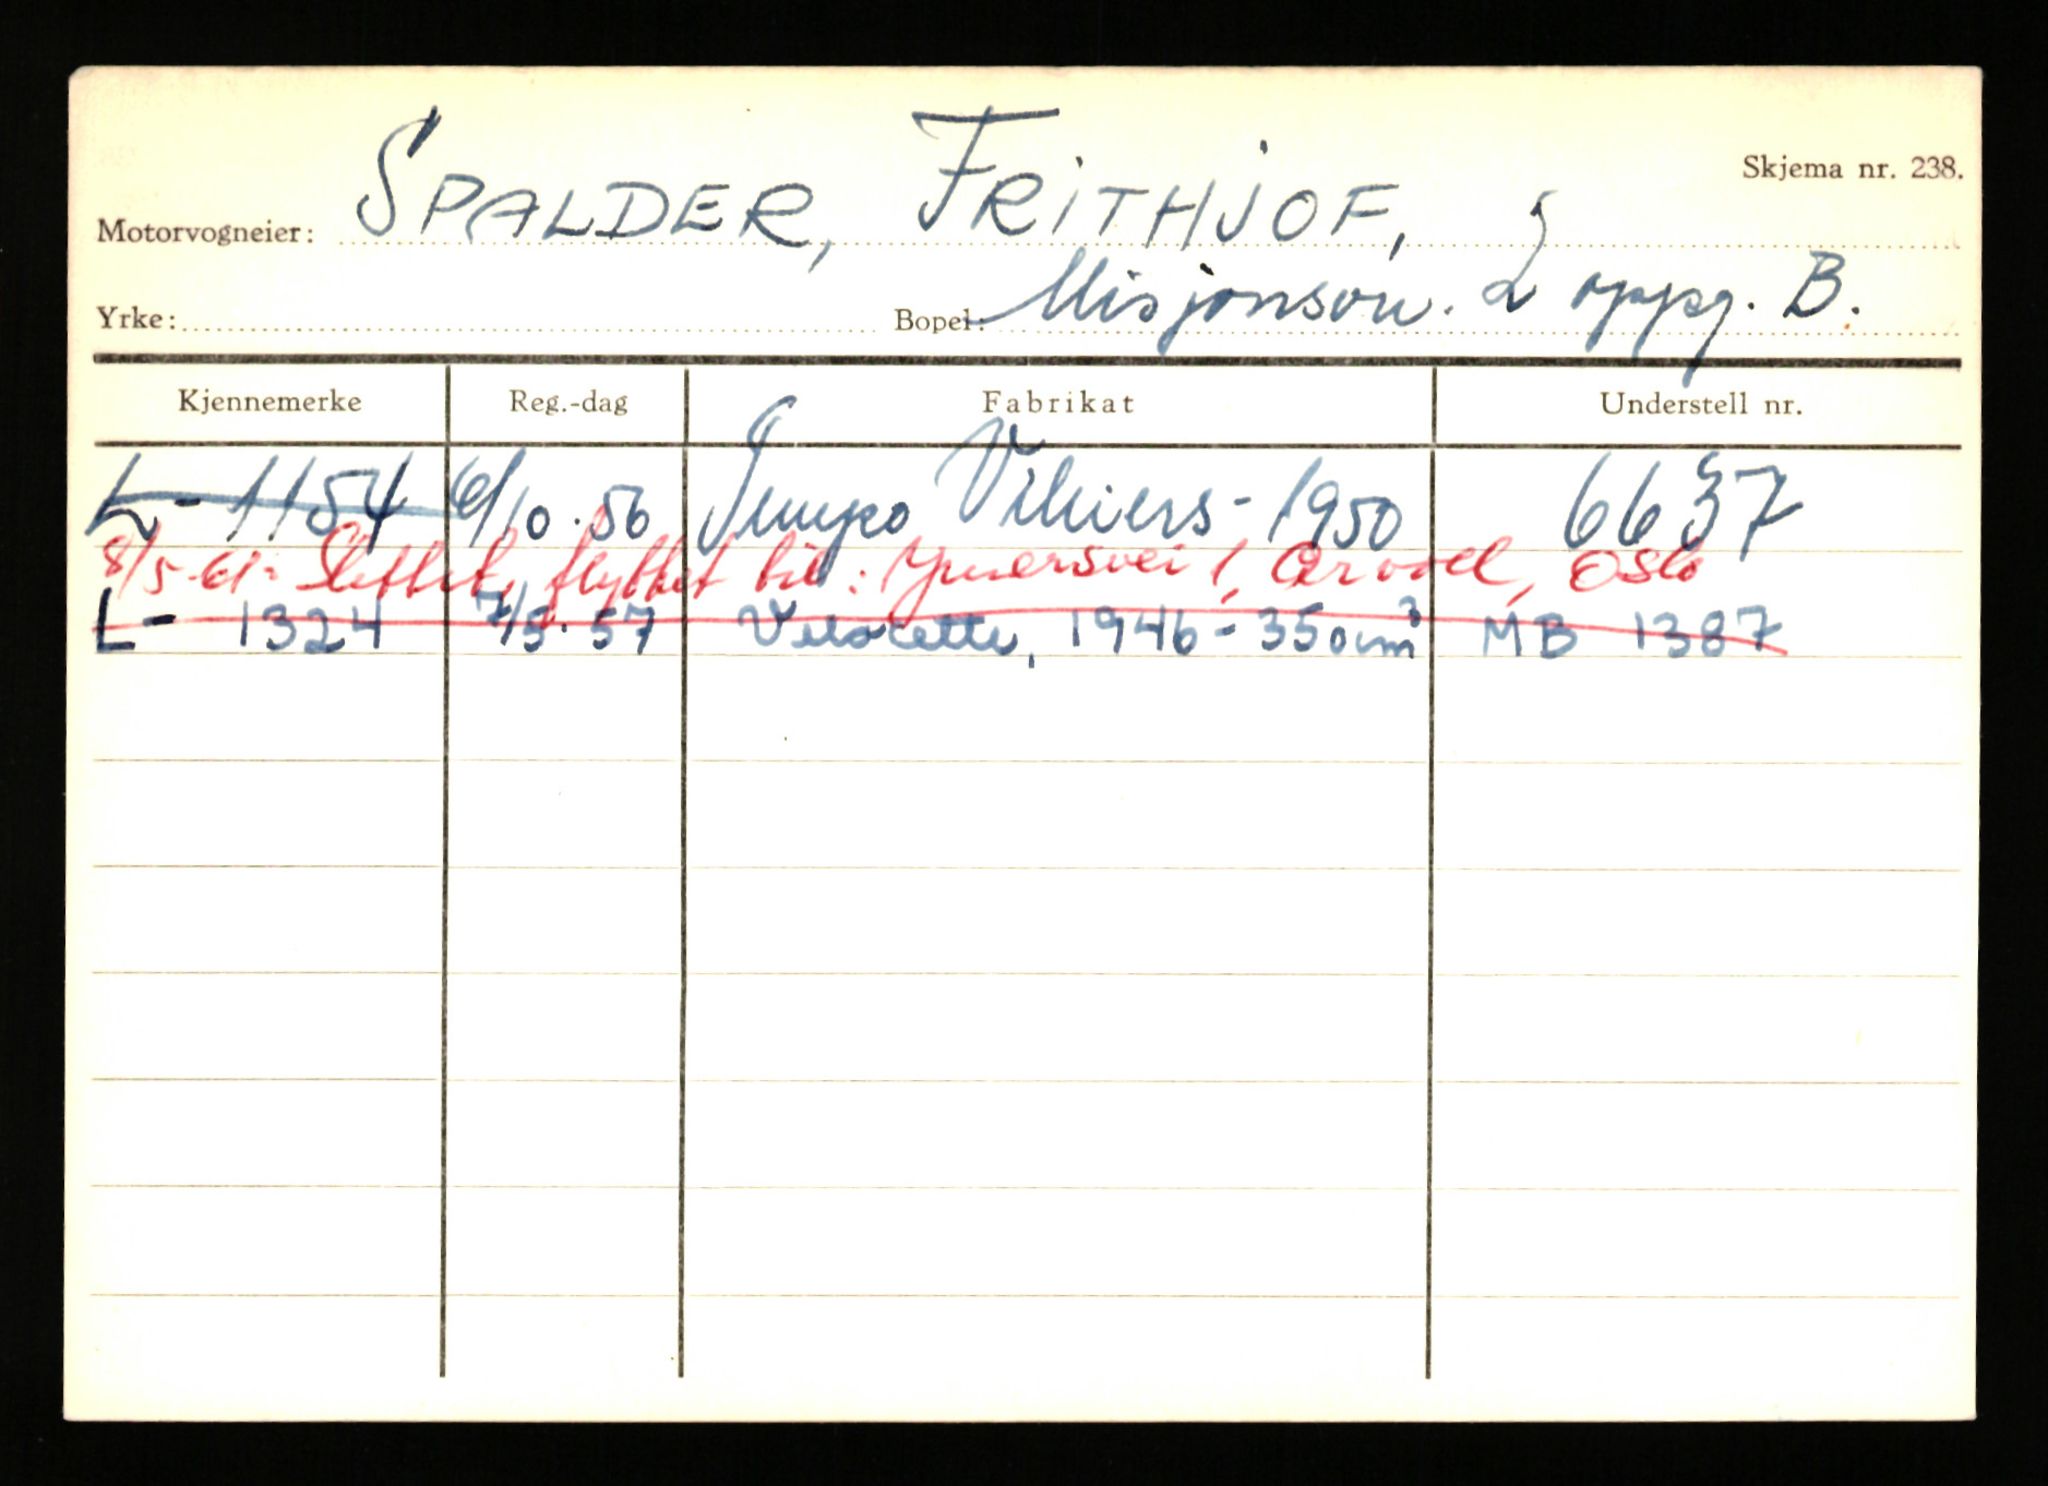 Skjema nr. 238.
Motorvogneier: SPALDER, FRITHJOF,
Yrke: Bopel: Misjonsvn. 2 oppg. B.
Kjennemerke Reg.-dag Fabrikat Understell nr.
L- 1154 6/10.56 Tempo Villiers - 1950 6637
8/5-61- Slettet, flyttet til: Ymersvei 1, Årvoll, Oslo
L- 1324 7/5.57 Velocette, 1946 - 350cm³ MB 1387